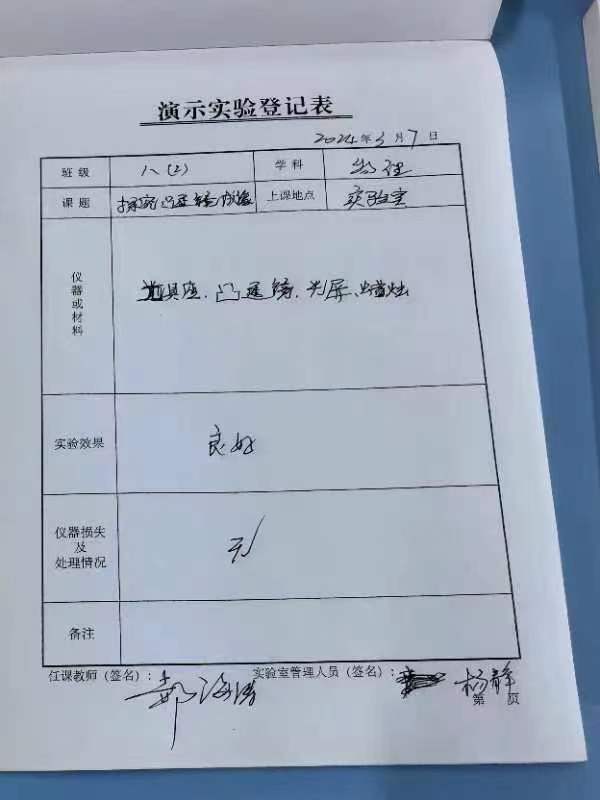 演示实验登记表
2024年3月7日
班级 八(2) 学科 物理
课题 探究凸透镜成像 上课地点 实验室
仪器或材料 光具座、凸透镜、光屏、蜡烛
实验效果 良好
仪器损失及处理情况 无
备注
任课教师（签名）： 实验室管理人员（签名）： 杨静
第 页